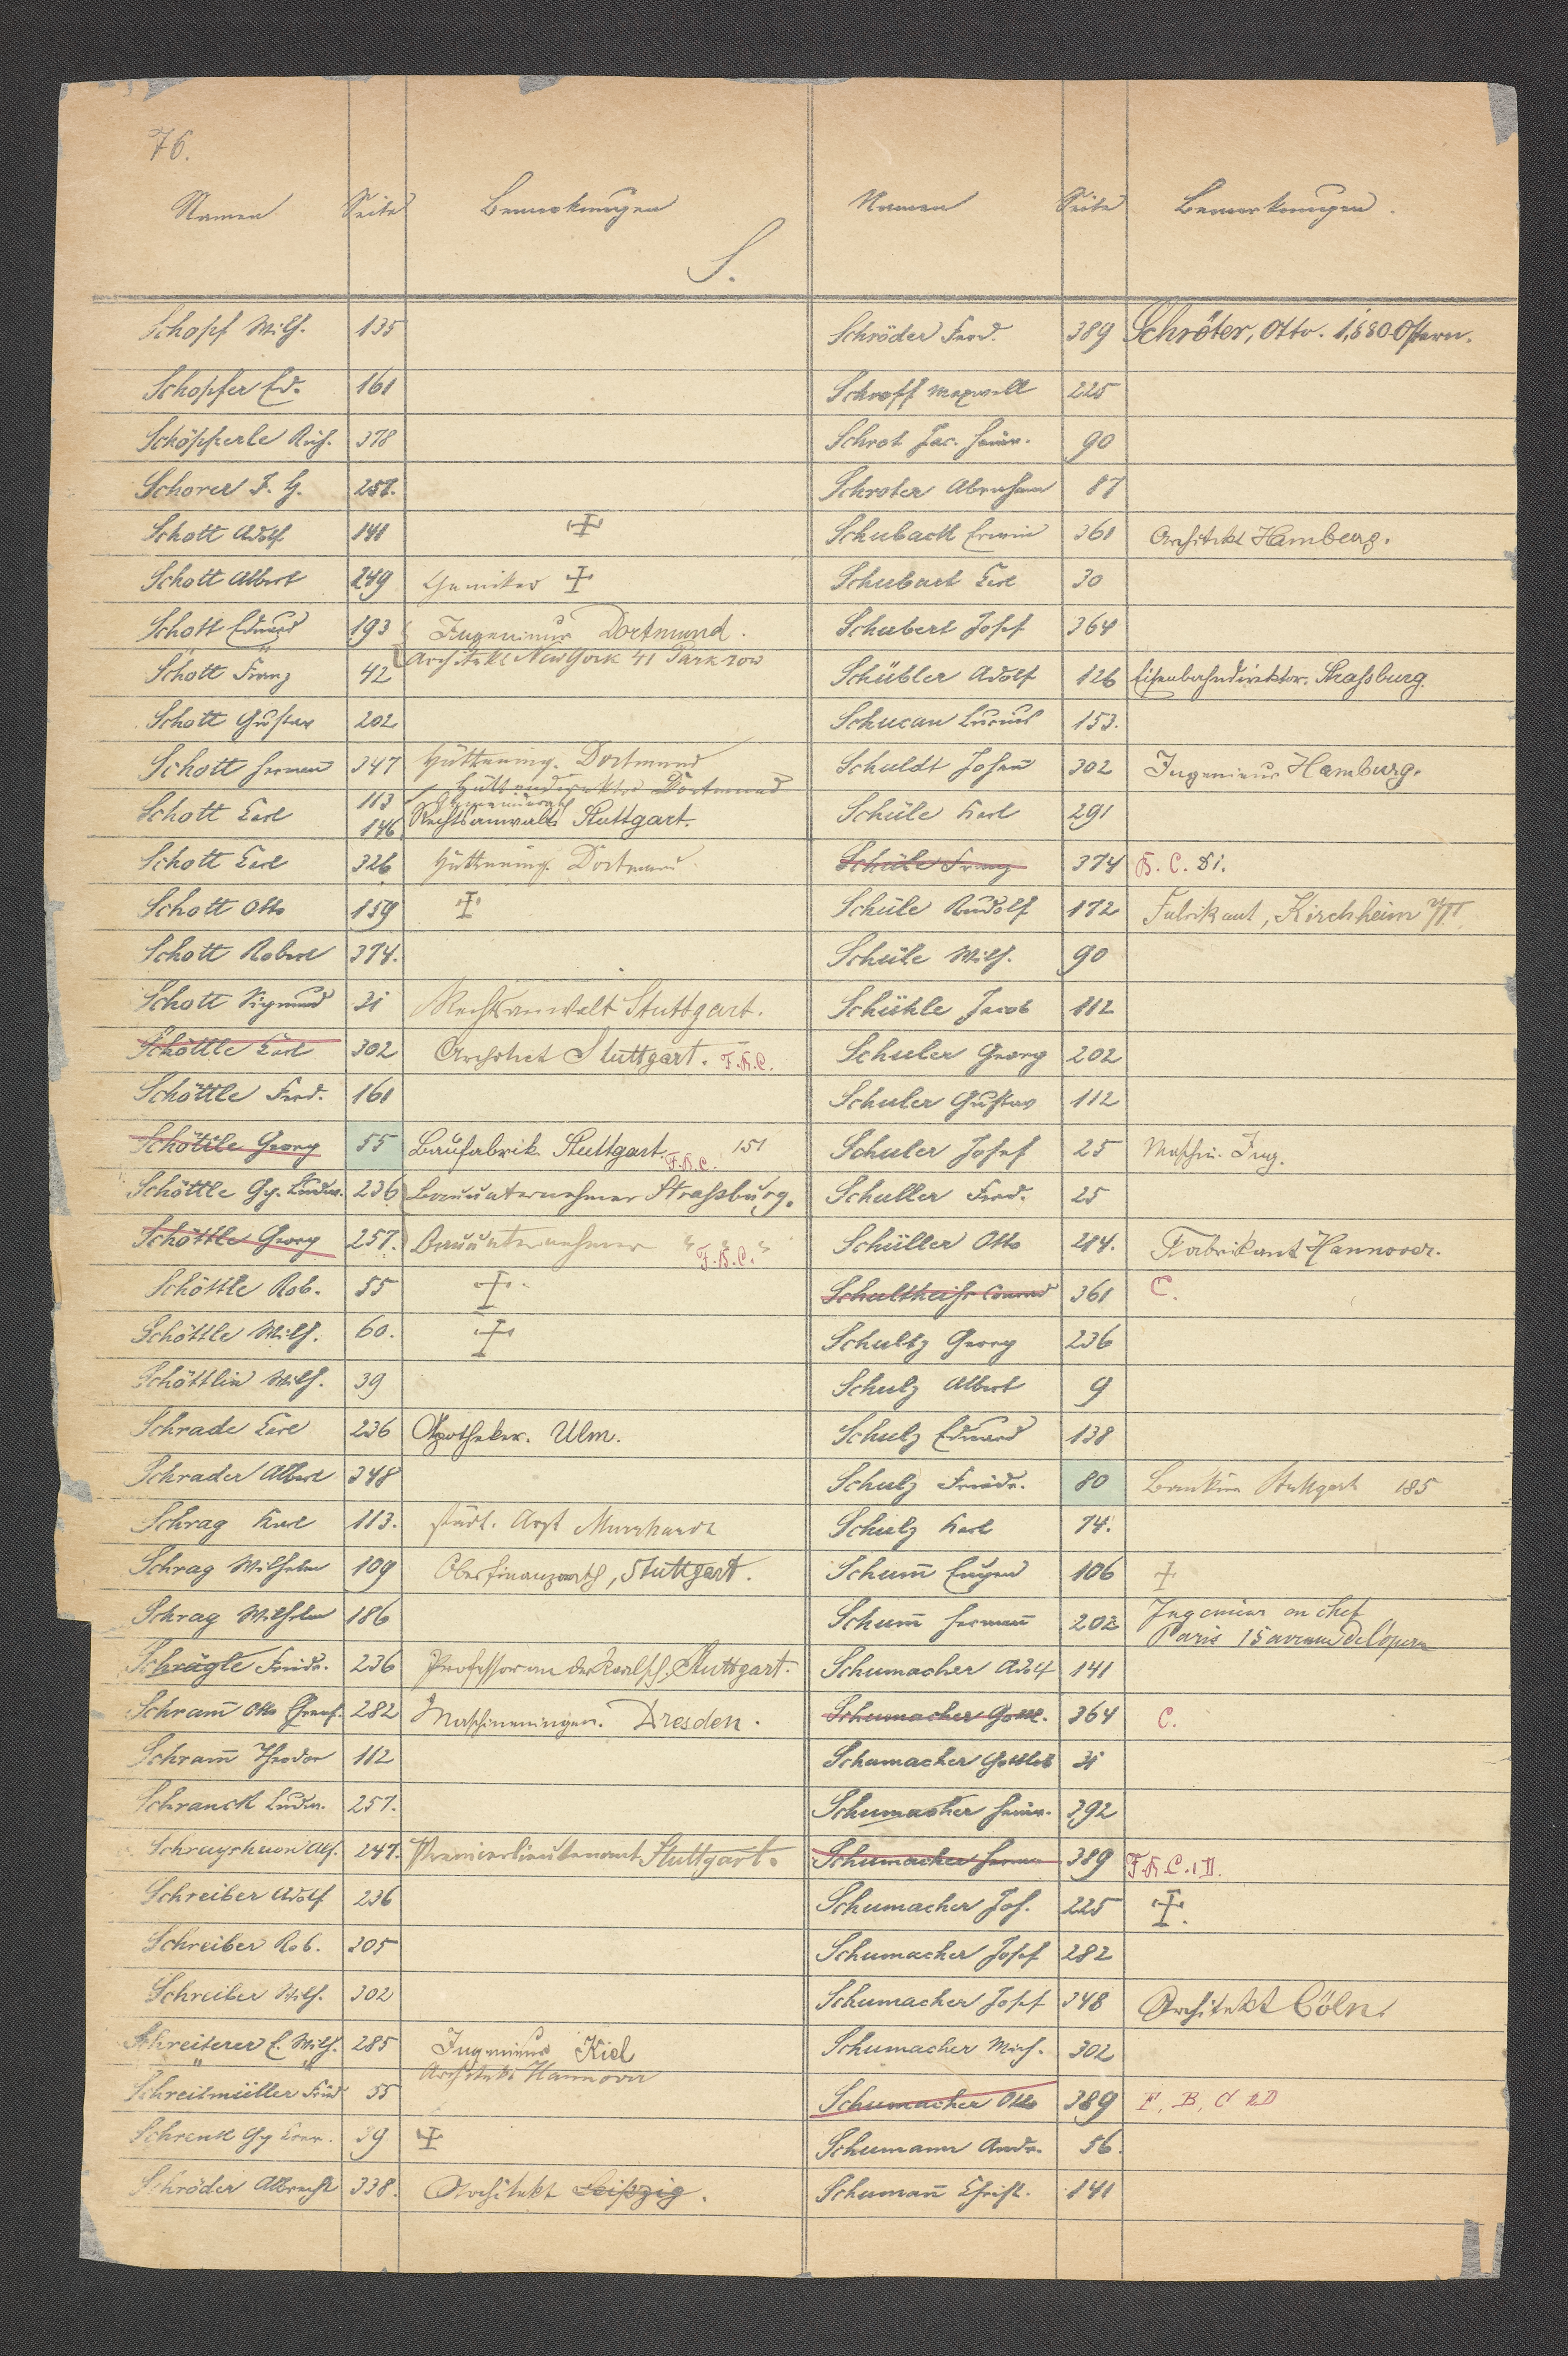 76.
Namen Seite Bemerkungen Namen Seite Bemerkungen.
S.
Schopf Wilh. 135
Schopfer Ed. 161
Schöpperle Rich. 378
Schorer F. G. 257.
Schott Adolf 141 ‡
Schott Albert 249 Chemiker ‡
Schott Eduard 193 Ingenieur Dortmund.
Architekt New York 41 Park row
Schott Franz 42
Schott Gustav 202
Schott Hermann 347 Hüttening. Dortmund
113 Hüttendirektor Dortmund
Schott Carl 146 Rechtsanwalt Stuttgart.
Schott Carl 326 Hüttening. Dortmund
Schott Otto 159 ‡
Schott Robert 374.
Schott Sigmund 31 Rechtsanwalt Stuttgart.
Schöttle Carl 302 Architect Stuttgart. F.K.C.
Schöttle Ferd. 161
Schöttle Georg 55 Baufabrik. Stuttgart. F.K.C. 151
Schöttle Gg. Ludw. 236 Bauunternehmer Straßburg.
Schöttle Georg 257. Bauunternehmer " " F.K.C.
Schöttle Rob. 55 ‡
Schöttle Wilh. 60. ‡
Schöttlin Wilh. 39
Schrade Carl 236 Apotheker. Ulm.
Schrader Albert 348
Schrag Karl 113. städt. Arzt Murrhardt
Schrag Wilhelm 109 Oberfinanzrath, Stuttgart.
Schrag Wilhelm 186
Schrägle Friedr. 236 Professor an der Realsch. Stuttgart.
Schram̅ Otto 282 Maschineningen. Dresden.
Schram̅ Theodor 112
Schranck Ludw. 257.
247. Premierlieutenant Stuttgart.
Schreiber Adolf 236
Schreiber Rob. 305
Schreiber Wilh. 302
Schreiterer E. Wilh. 285 Ingenieur Kiel
Architekt Hannover
Schreitmüller Fried 55
Schrenk Gg 39 ‡
Schröder Albrecht 338. Architekt Leipzig.
Schröder Ferd. 389 Schröter, Otto. 1880 Ostern.
Schroff Maxwell 225
Schrot Jac. Heinr. 90
Schroter Abraham 87
Schubach Erwin 361 Architekt Hamburg.
Schubart Carl 30
Schubert Josef 364
Schübler Adolf 126 Eisenbahndirektor. Straßburg.
Schucan 153.
Schuldt Johann 302 Ingenieur Hamburg.
Schüle Karl 291
Schüle Franz 374 K. C.
Schüle Rudolf 172 Fabrikant, Kirchheim u/T.
Schüle Wilh. 90
Schühle Jacob 112
Schuler Georg 202
Schuler Gustav 112
Schuler Josef 25 Maschin. Ing.
Schuller Ferd. 25
Schüller Otto 214. Fabrikant Hannover.
Schultheiss Conrad 361 C.
Schultz Georg 236
Schulz Albert 9
Schulz Eduard 138
Schulz Friedr. 80 Bankier Stuttgart 185
Schulz Karl 74.
Schum̅ Eugen 106 ‡
Schum̅ Hermann 202 Ingenieur en chef
Paris 15 avenue de l'opera
Schumacher Adolf 141
Schumacher Gottl. 364 C.
Schumacher Gottlob 31
Schumacher Heinr. 392
Schumacher Herm. 389 F.K.C. 1 D.
Schumacher Joh. 225 ‡.
Schumacher Josef 282
Schumacher Josef 348 Architekt Cöln.
Schumacher Mich. 302
Schumacher Otto 389 F, B, C 2D
Schumann Andr. 56.
Schuman̅ Christ. 141